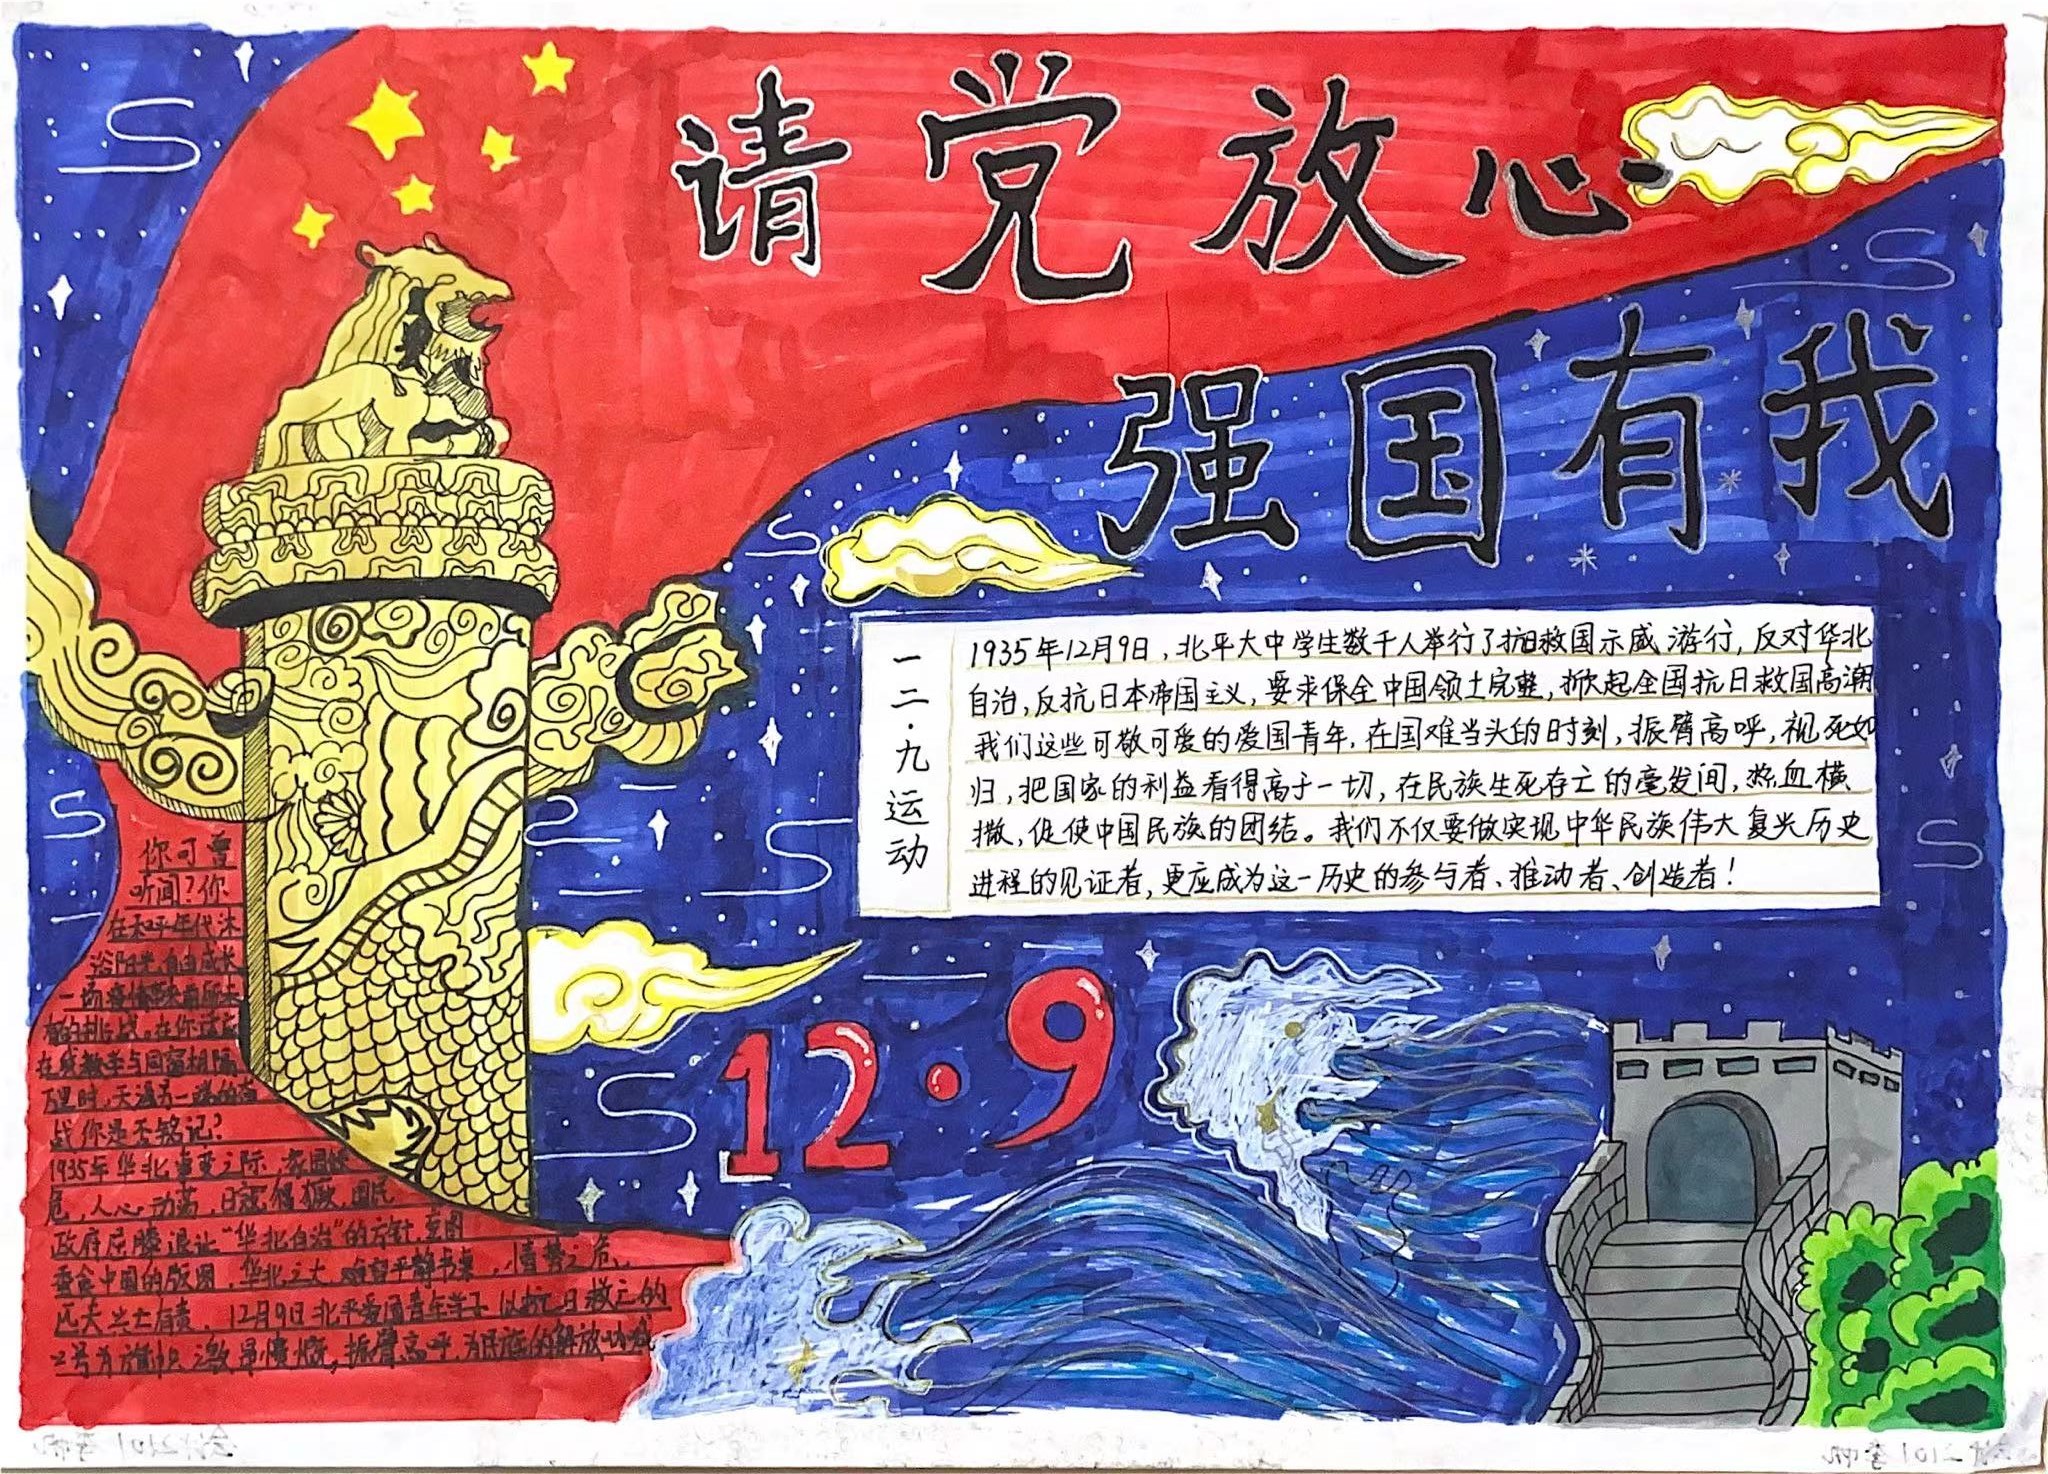 请党放心
强国有我
一二·九运动
1935年12月9日，北平大中学生数千人举行了抗日救国示威游行，反对华北
自治，反抗日本帝国主义，要求保全中国领土完整，掀起全国抗日救国高潮
我们这些可敬可爱的爱国青年，在国难当头的时刻，振臂高呼，视死如
归，把国家的利益看得高于一切，在民族生死存亡的毫发间，热血横
撒，促使中国民族的团结。我们不仅要做实现中华民族伟大复兴历史
进程的见证者，更应成为这一历史的参与者、推动者、创造者！
12·9
你可曾
听闻？你
在和平年代沐
浴阳光，自由成长
一场疫情带来前所未
有的挑战。在你
在线教学与同窗相隔
万里时，天
战你是否铭记？
1935年华北事变之际，
危，人心动荡，日寇猖獗，国民
政府屈膝退让“华北自治”的方针，
蚕食中国的版图，华北之大，难容平静书桌，情势之危，
匹夫兴亡有责，12月9日北平爱国青年学子以抗日救亡的
振臂高呼，为民族的解放